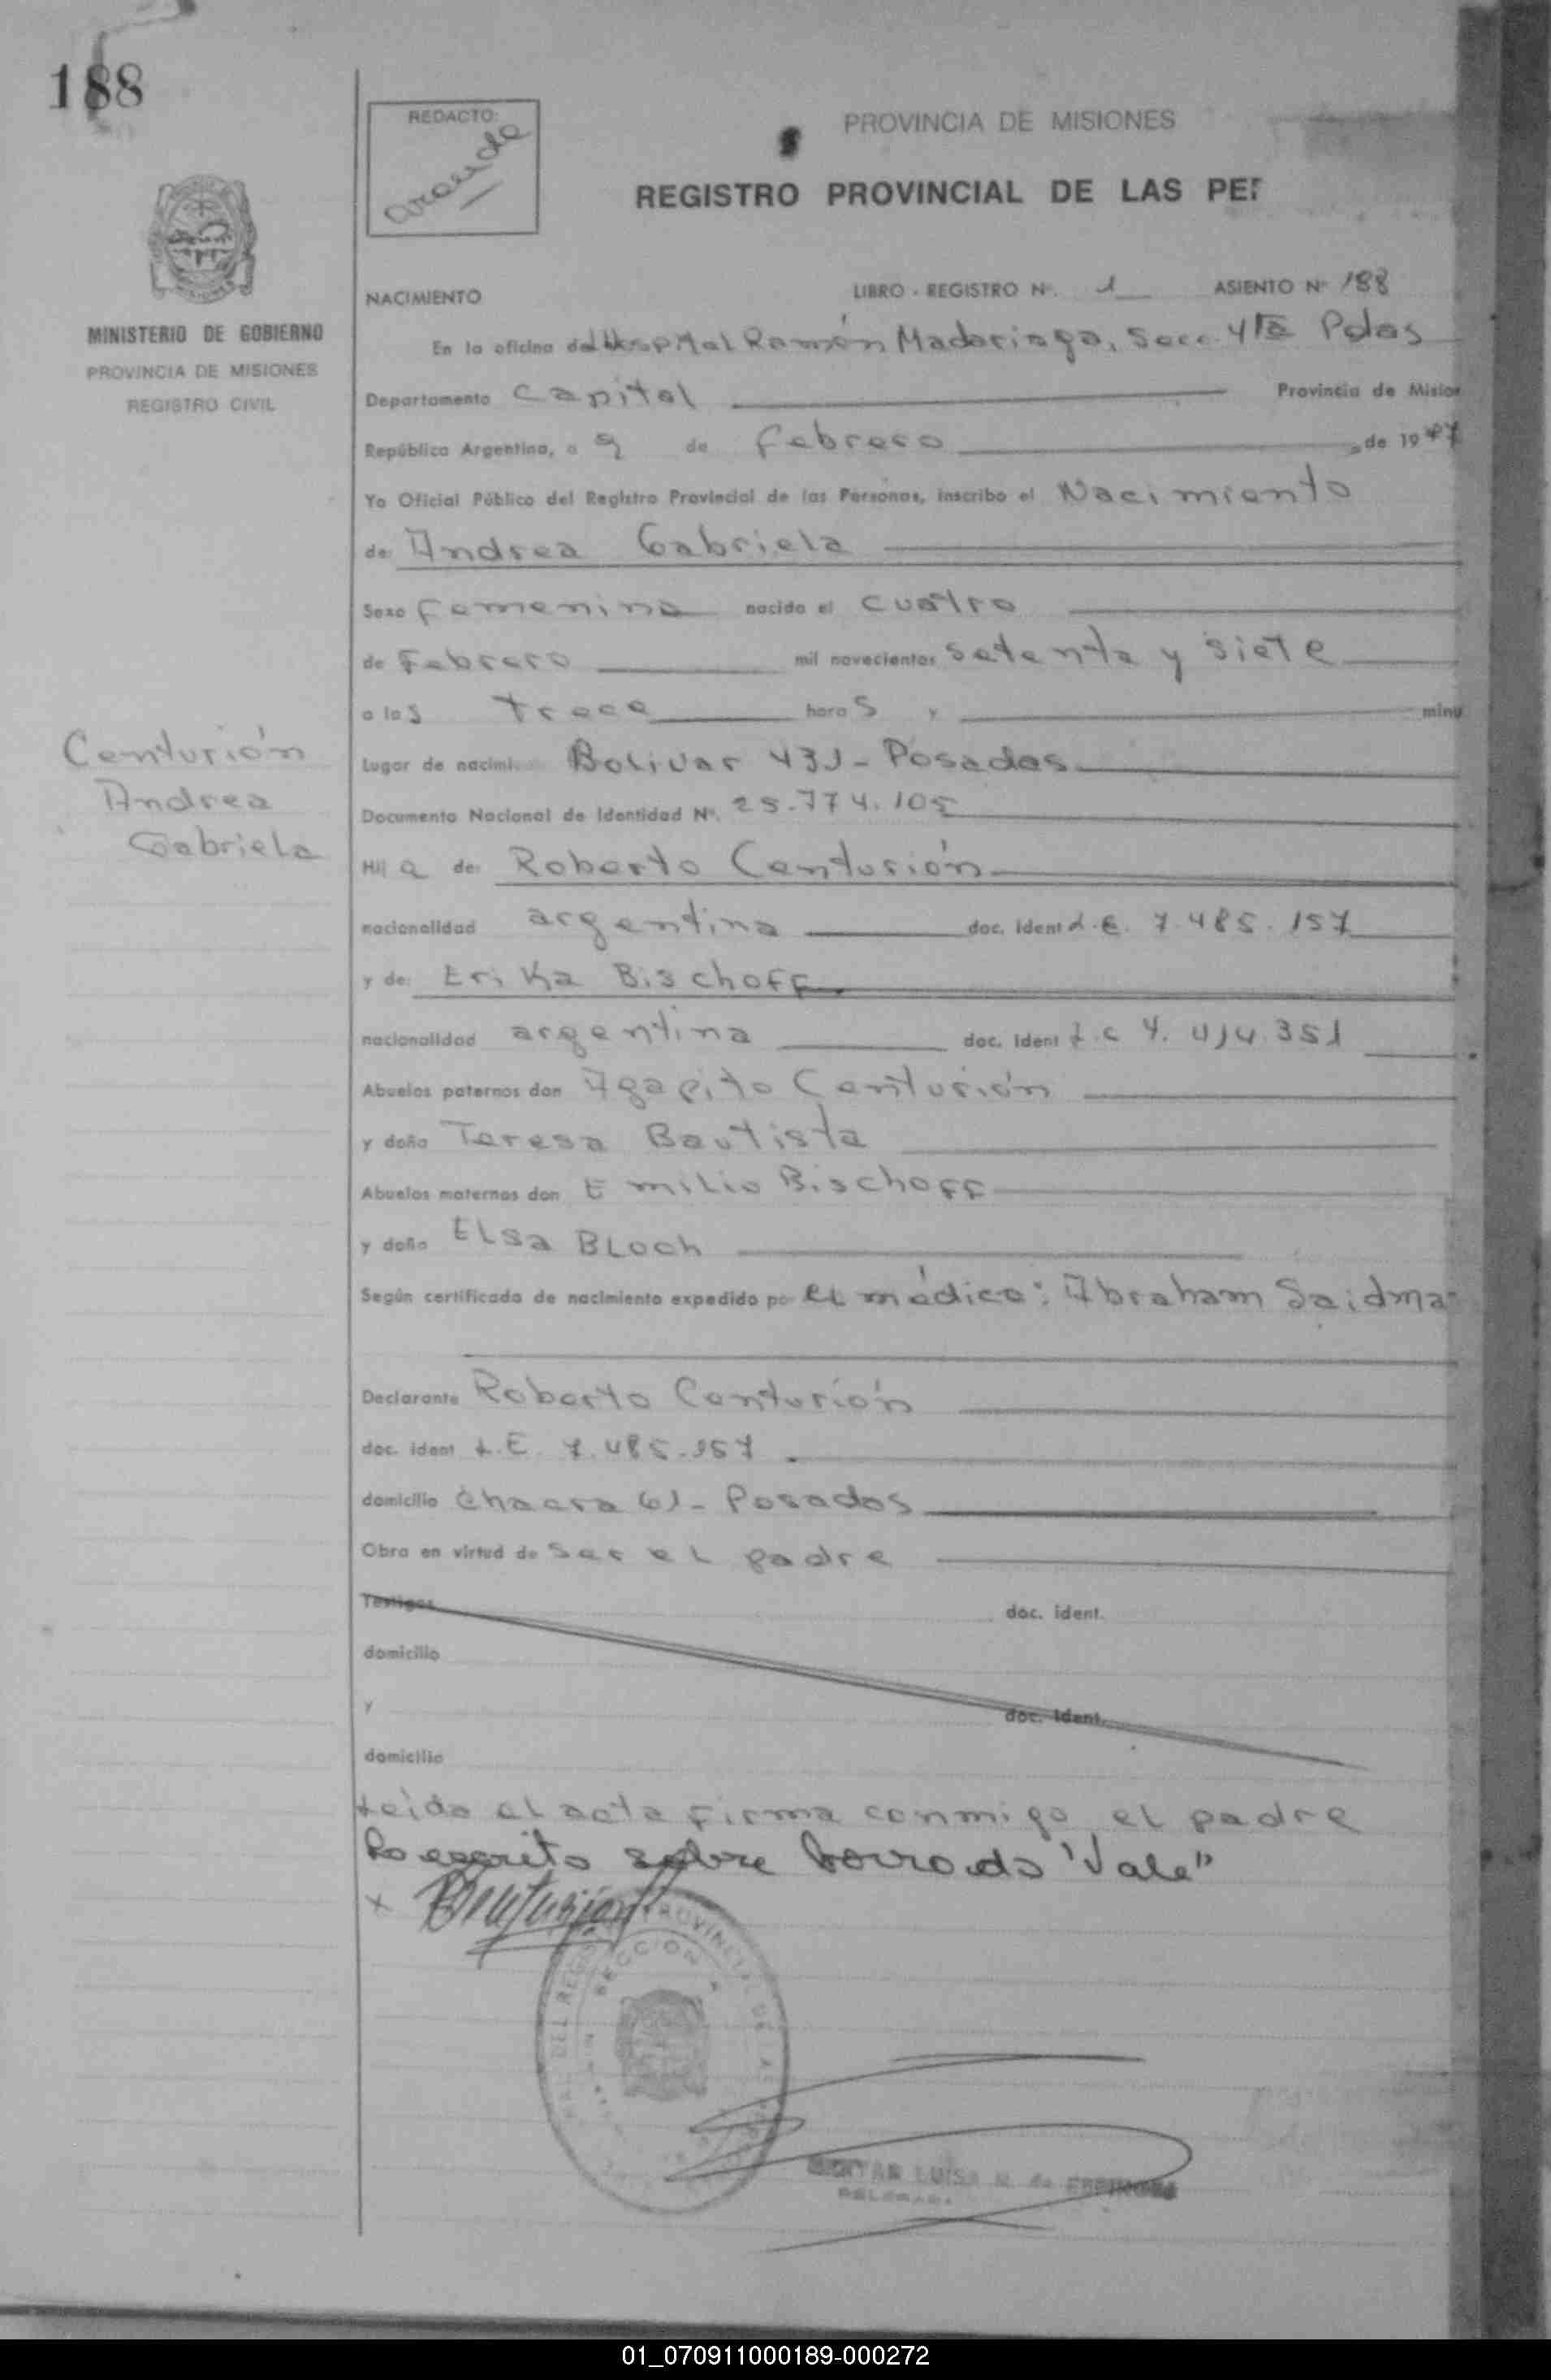 188
REDACTO:
PROVINCIA DE MISIONES
REGISTRO PROVINCIAL DE LAS PE
NACIMIENTO
LIBRO - REGISTRO Nº. 1 ASIENTO Nº 188
MINISTERIO DE GOBIERNO
PROVINCIA DE MISIONES
REGISTRO CIVIL
En la oficina del Hospital Ramón Madariaga, Secc. 4ta Pdas
Departamento Capital Provincia de Mision
República Argentina, a 9 de Febrero de 1977
Yo Oficial Público del Registro Provincial de las Personas, inscribo el Nacimiento
de: Andrea Gabriela
Sexo Femenino nacido el cuatro
de Febrero mil novecientos setenta y siete
a las trece horas y minu
Centurión
Andrea
Gabriela
Lugar de nacimi Bolivar 431 - Posadas
Documento Nacional de Identidad Nº. 25.774.105
Hija de: Roberto Centurión
nacionalidad argentina doc. ident L.E. 7.485.157
y de: Erika Bischoff
nacionalidad argentina doc. ident L.C 4.414.351
Abuelos paternos don Agapito Centurión
y doña Teresa Bautista
Abuelos maternos don Emilio Bischoff
y doña Elsa Bloch
Según certificado de nacimiento expedido po el médico: Abraham Saidma
Declarante Roberto Centurión
doc. ident L.E. 7.485.157.
domicilio Chacra 61 - Posadas
Obra en virtud de ser el padre
Testigos doc. ident.
domicilio
y doc. ident.
domicilio
Leída el acta firma conmigo el padre
Lo escrito sobre borrado "Vale"
x Centurión
SECCION
LUISA
01_070911000189-000272